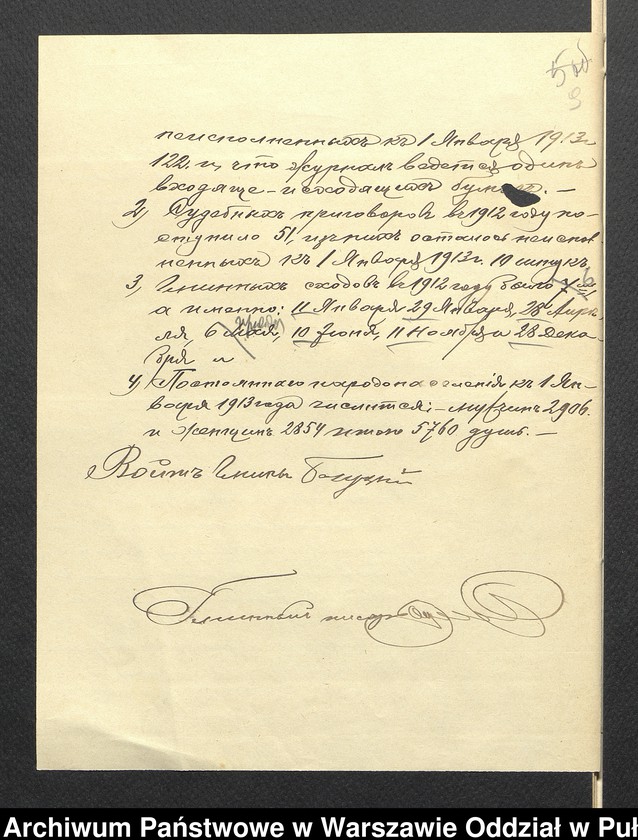 неисполненныхъ къ 1 Января 1913 г.
122. и, что журналъ ведется одинъ
входяще-исходящихъ бумагъ. —
2, Судебныхъ приговоровъ въ 1912 году по-
ступило 51, изъ нихъ осталось неиспол
ненныхъ къ 1 Января 1913 г. 10 штукъ
3, Гминныхъ сходовъ въ 1912 году было
6
а именно: 11 Января, 29 Января, 28 Апрѣ-
ля, 6 Мая, 10 Іюня, 11 Ноября и 28 Дека-
бря и
4, Постояннаго народонаселенія къ 1 Ян-
варя 1913 года числится: — мужчинъ 2906.
и женщинъ 2854 итого 5760 душъ. —
Войтъ Гмины
Гминный писарь
Archiwum Państwowe w Warszawie Oddział w Puł